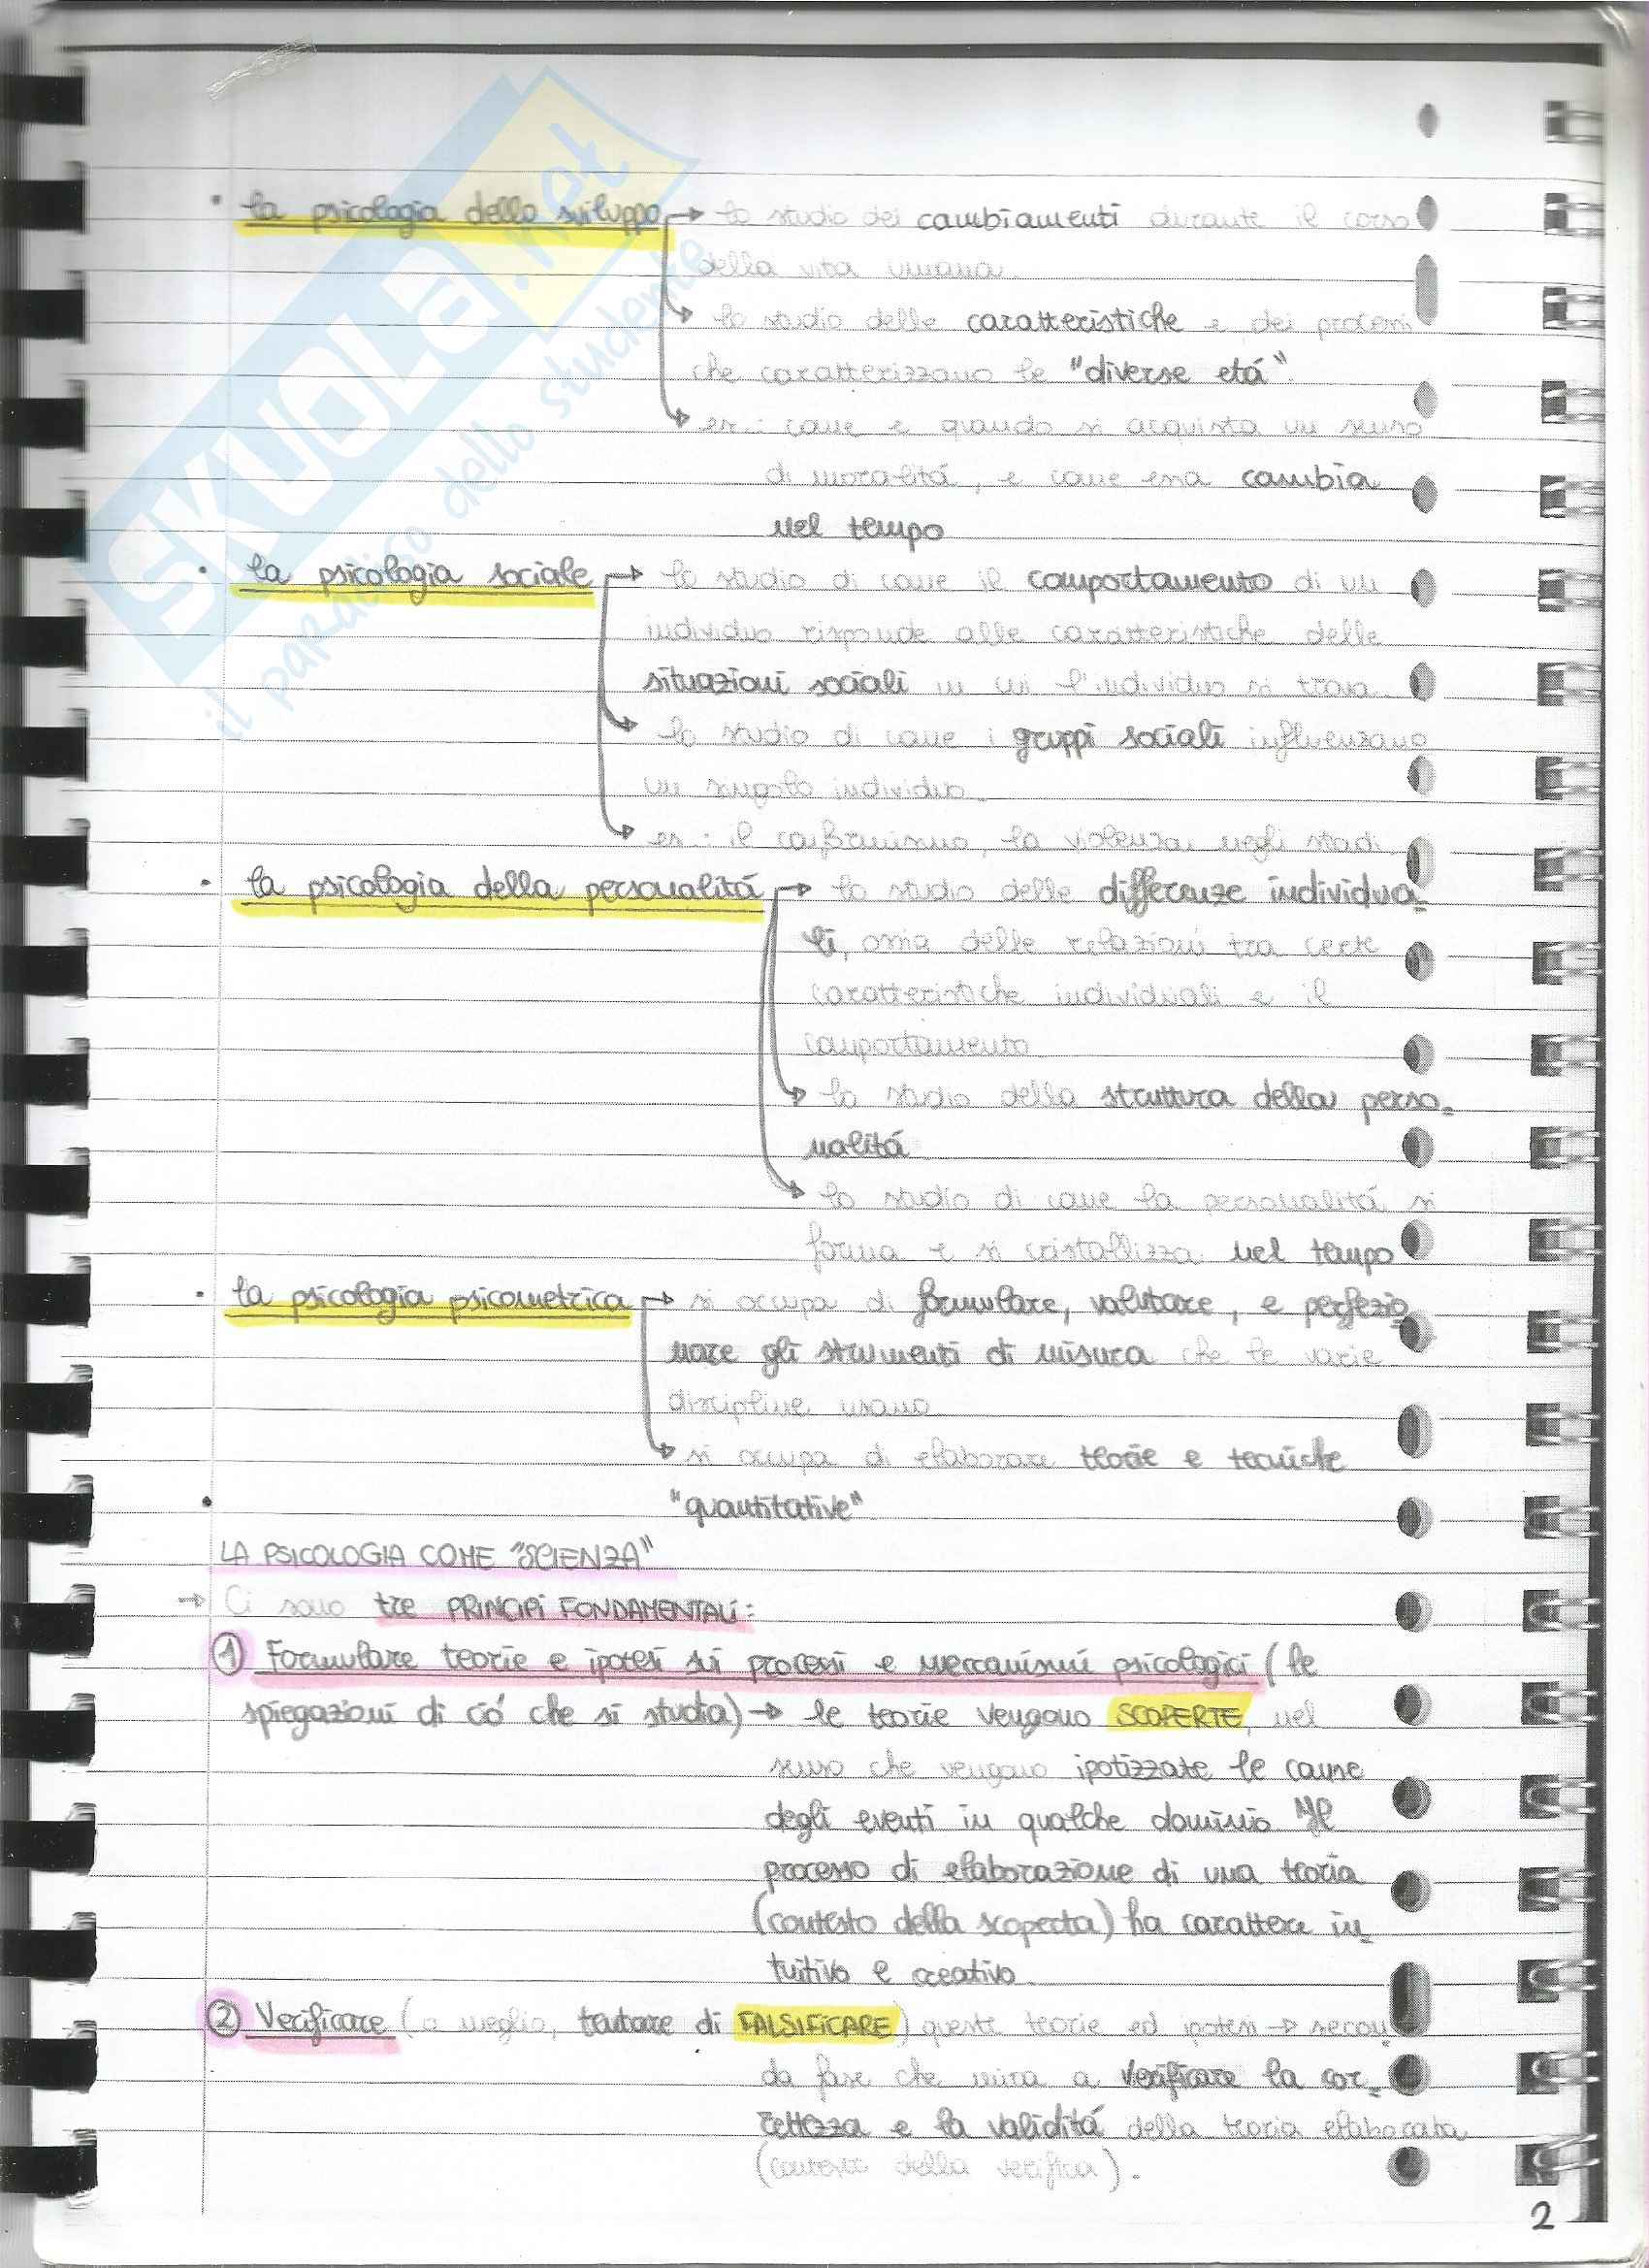 · la psicologia dello sviluppo → lo studio dei cambiamenti durante il corso
della vita umana.
→ lo studio delle caratteristiche e dei processi
che caratterizzano le "diverse etá".
→ es.: come e quando si acquista un senso
di moralitá, e come essa cambia
nel tempo
· la psicologia sociale → lo studio di come il comportamento di un
individuo risponde alle caratteristiche delle
situazioni sociali in cui l'individuo si trova.
→ lo studio di come i gruppi sociali influenzano
un singolo individuo.
→ es.: il conformismo, la violenza negli stadi
· la psicologia della personalitá → lo studio delle differenze individua-
li, ossia delle relazioni tra certe
caratteristiche individuali e il
comportamento
→ lo studio della struttura della perso-
nalitá
→ lo studio di come la personalitá si
forma e si cristallizza nel tempo
· la psicologia psicometrica → si occupa di formulare, valutare, e perfezio
nare gli strumenti di misura che le varie
discipline usano
→ si occupa di elaborare teorie e tecniche
"quantitative"
LA PSICOLOGIA COME "SCIENZA"
→ Ci sono tre PRINCIPI FONDAMENTALI:
① Formulare teorie e ipotesi sui processi e meccanismi psicologici (le
spiegazioni di ció che si studia) → le teorie vengono SCOPERTE, nel
senso che vengono ipotizzate le cause
degli eventi in qualche dominio. Il
processo di elaborazione di una teoria
(contesto della scoperta) ha carattere in-
tuitivo e creativo.
② Verificare (o meglio, tentare di FALSIFICARE) queste teorie ed ipotesi → secon-
da fase che mira a verificare la cor-
rettezza e la validitá della teoria elaborata
(contesto della verifica).
2
SKUOLA.net
il paradiso dello studente